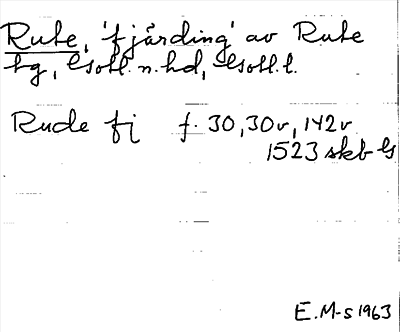 Rute, 'fjärding' av Rute
tg, Gotl. n. hd, Gotl. l.
Rude fj f. 30, 30v, 142v
1523 skb G
E. M-s 1963